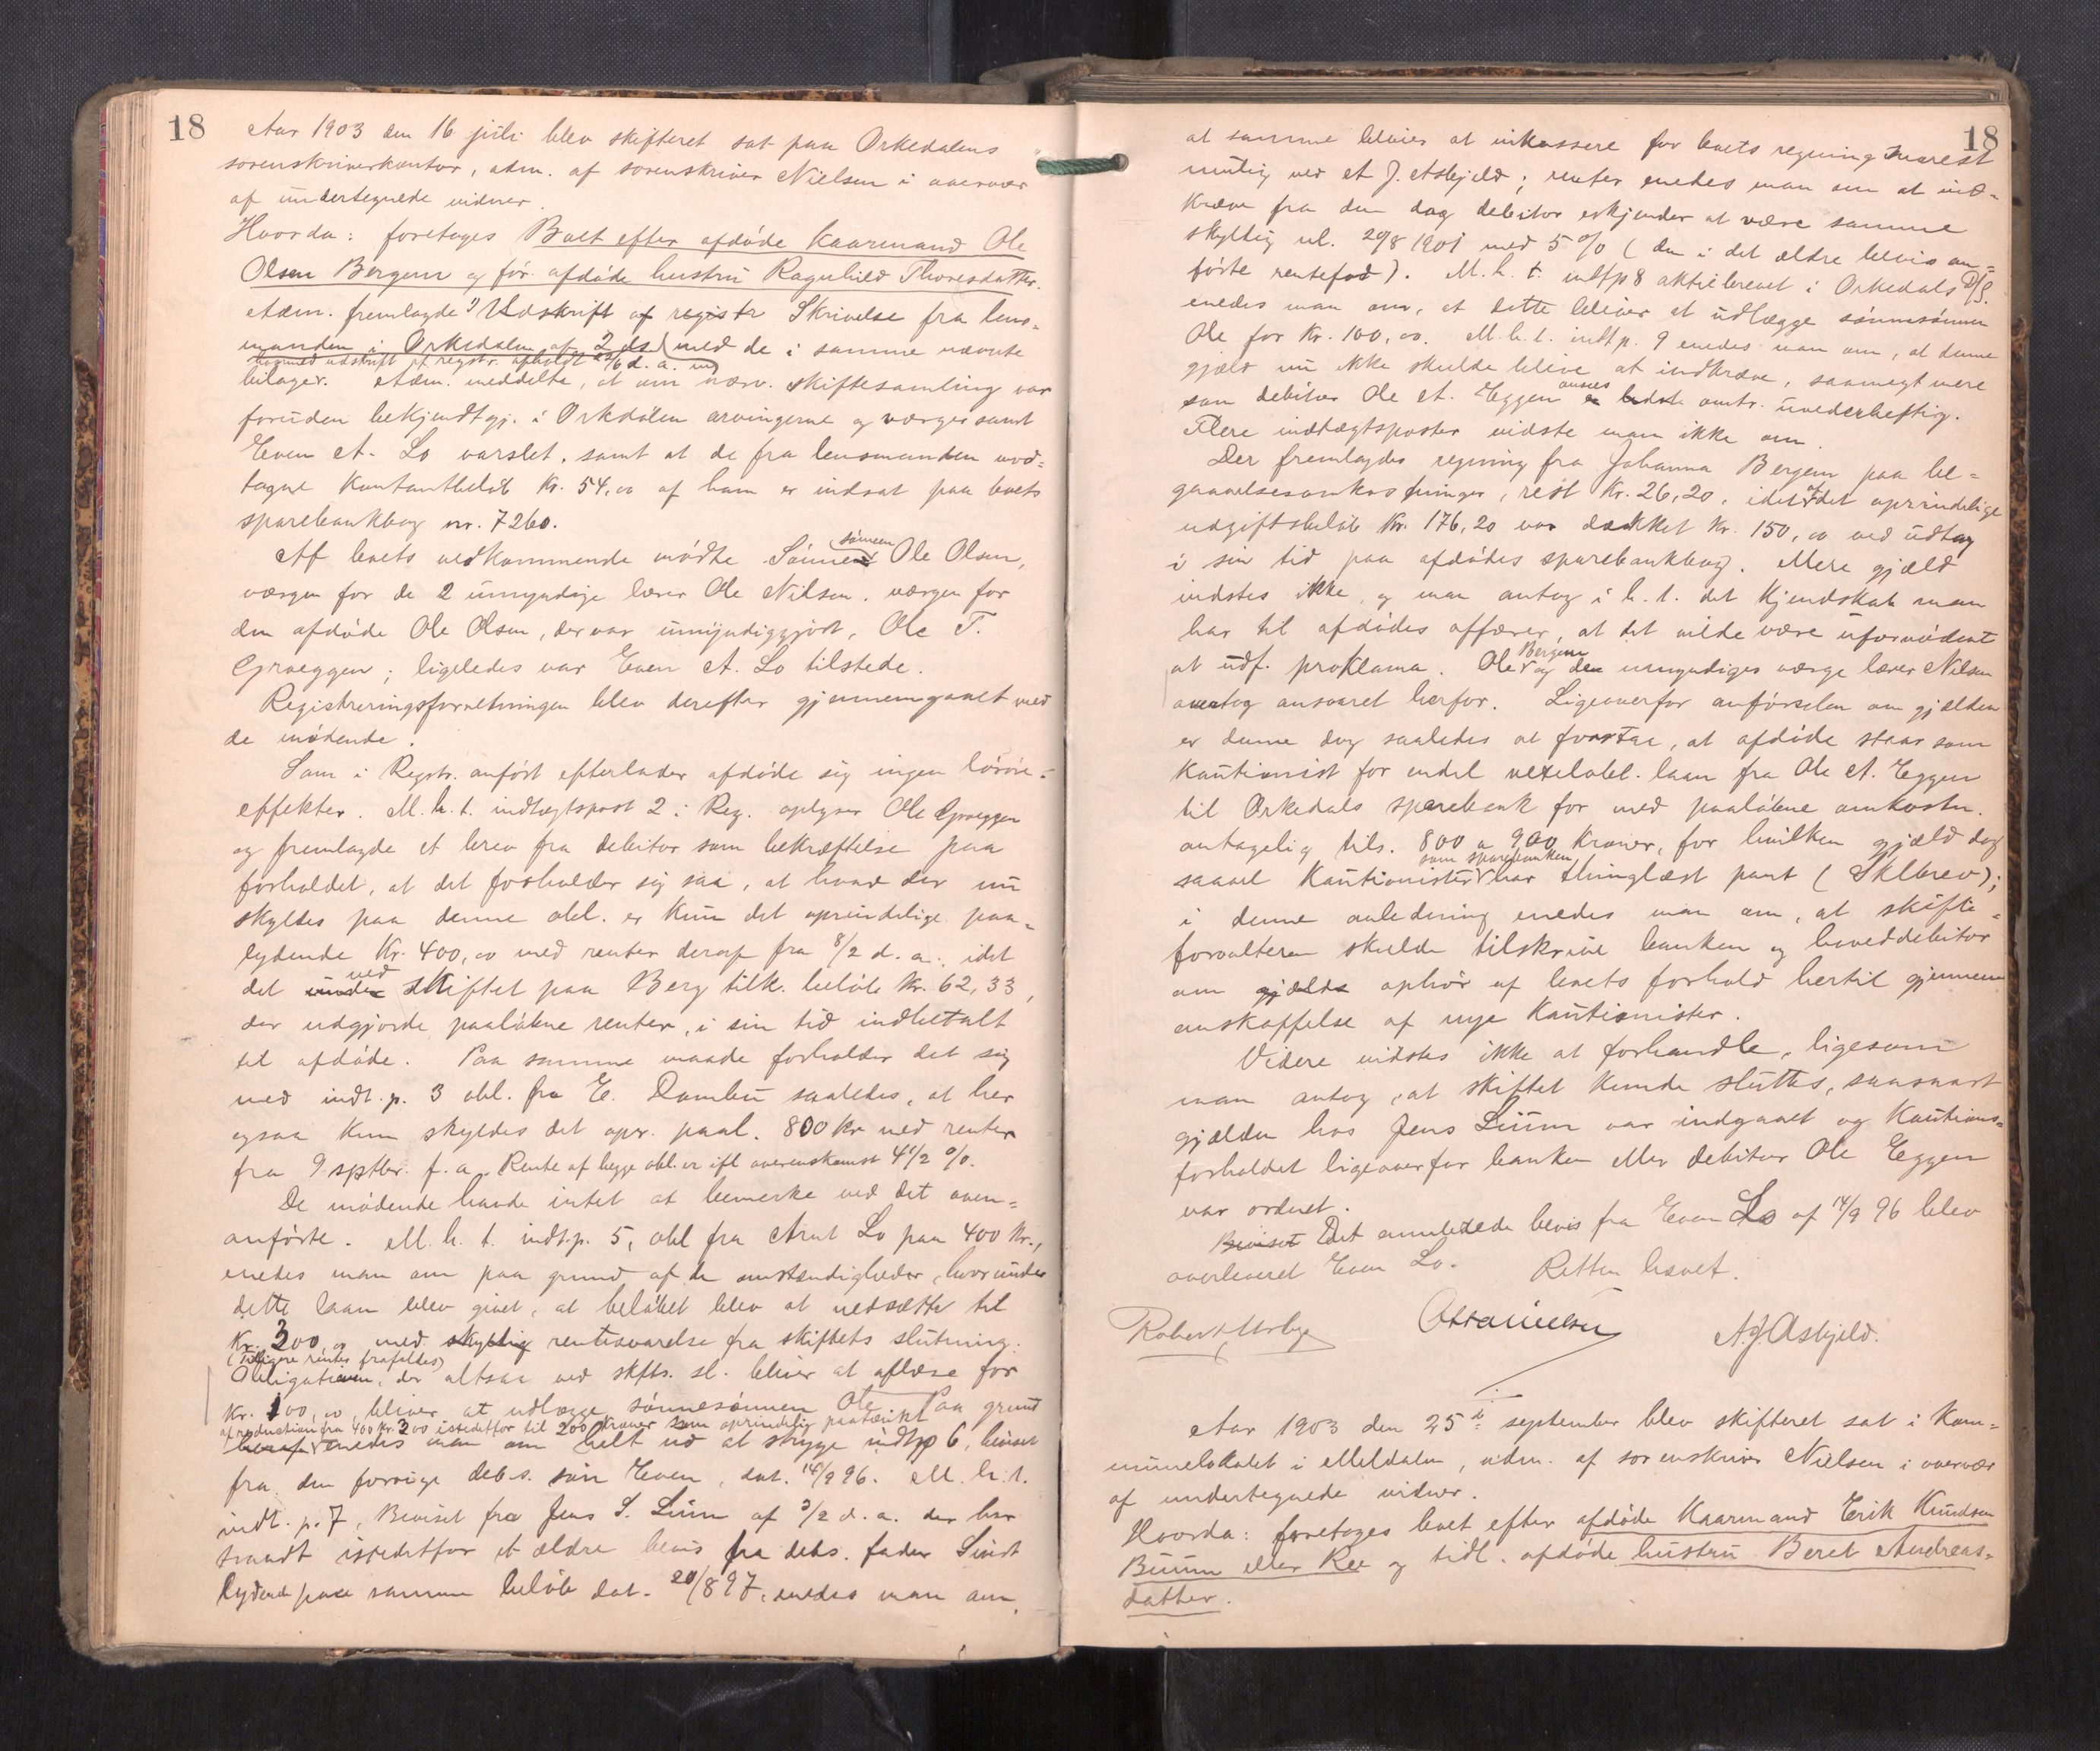 18
Aar 1903 den 16 juli blev skifteret sat paa Orkedalens
sorenskriverkontor, adm. af sorenskriver Nielsen i overvær
af undertegnede vidner.
Hvorda: foretoges Boet efter afdøde Kaarmand Ole
Olsen Bergem og før afdøde hustru Ragnhild Thoresdatter.
Adm. fremlagde Udskrift af registr Skrivelse fra lens-
manden i Orkedalen af 2 ds. med de i samme nævnte
tilligemed udskrift af registr. afholdt 22/6 d. a.
bilager. Adm. meddelte, at om nærv. skiftesamling var
foruden bekjendtgj. i Orkdalen arvingerne og værger samt
Even A. Lo varslet, samt at de fra lensmanden mod-
tagne Kontantbeløb Kr. 54,00 af ham er indsat paa boets
sparebankbog nr. 7260.
Af boets vedkommende mødte Sønnen sønnen Ole Olsen,
værgen for de 2 umyndige lærer Ole Nilsen, værgen for
den afdøde Ole Olsen, der var umyndiggjort, Ole T.
Groeggen; ligeledes var Even A. Lo tilstede.
Registreringsforretningen blev derefter gjennemgaaet med
de mødende.
Som i Registr. anført efterlader afdøde sig ingen løsøre-
effekter. M. h. t. indtægtspost 2 i Reg. oplyser Ole Groeggen
og fremlagde et brev fra debitor som bekræftelse paa
forholdet, at det forholder sig saa, at hvad der nu
skyldes paa denne obl. er kun det oprindelige paa-
lydende Kr. 400,00 med renter deraf fra 8/2 d. a., idet
det under ved skiftet paa Berg tilk. beløb Kr. 62,33,
der udgjorde paaløbne renter, i sin tid indbetalt
til afdøde. Paa samme maade forholder det sig
med indt. p. 3 obl. fra E. Dombu saaledes, at her
ogsaa kun skyldes det opr. paal. 800 Kr med renter
fra 9 septbr. f. a. Rente af begge obl. er ifl overenskomst 4 1/2 %.
De mødende havde intet at bemerke ved det oven-
anførte. M. h. t. indt.p. 5, obl fra Arnt Lo paa 400 Kr.,
enedes man om paa grund af de omstændigheder, hvorunder
dette laan blev givet, at beløbet blev at nedsætte til
Kr. 300,00 med skyldig rentesvarelse fra skiftets slutning.
(tidligere renter frafaldes)
Obligationen, der altsaa ved skfts. sl. bliver at aflæse for
Kr. 100,00, bliver at udlægge sønnesønnen Ole. Paa grund
af reduction fra 400 Kr. 300 istedetfor til 200 Kroner som oprindelig paatænkt
heraf enedes man om helt ud at stryge indtp 6, beviset
fra den forrige debs. søn Even, dat. 14/9 96. M. h. t.
indt. p. 7, Beviset fra Jens S. Luim af 3/2 d. a. der har
traadt istedetfor et ældre bevis fra debs. fader Sivert
lydende paa samme beløb dat. 20/8 97, enedes man om,
18
at samme bliver at inkassere for boets regning snarest
mulig ved A. J. Asbjeld; renter enedes man om at ind-
kræve fra den dag debitor erkjender at være samme
skyldig nl. 20/8 1901 med 5 % (den i det ældre bevis an-
førte rentefod). M. h. t. indtp 8 aktiebrevet i Orkedals D/S.
enedes man om, at dette bliver at udlægge sønnesønnen
Ole for Kr. 100,00. M. h. t. indt p. 9 enedes man om, at denne
gjæld nu ikke skulde blive at indkræve, saameget mere
som debitor Ole A. Eggen ansees er bedste omtr. uvederheftig.
Flere indtægtsposter vidste man ikke om.
Der fremlagdes regning fra Johanna Bergem paa be-
gravelsesomkostninger, rest Kr. 26,20, idet af det oprindelige
udgiftsbeløb Kr. 176,20 var dækket Kr. 150,00 ved udtag
i sin tid paa afdødes sparebankbog. Mere gjæld
vidstes ikke, og man antog i h. t. det Kjendskab man
har til afdødes affærer, at det vilde være ufornødent
at udf. proklama. Ole Bergem og den umyndiges værge lærer Nilsen
overtog ansvaret herfor. Ligeoverfor anførselen om gjælden
er denne dog saaledes at forstaa, at afdøde staar som
Kautionist for endel vexelobl. laan fra Ole A. Eggen
til Orkedals sparebank for med paaløbne omkostn.
antagelig tils. 800 a 900 Kroner, for hvilken gjæld dog
saavel Kautionister som sparebanken har thinglæst pant (Sklbrev);
i denne anledning enedes man om, at skifte-
forvalteren skulde tilskrive banken og hoveddebitor
om gjælds ophør af boets forhold hertil gjennem
anskaffelse af nye Kautionister.
Videre vidstes ikke at forhandle, ligesom
man antog, at skiftet kunde sluttes, saasnart
gjælden hos Jens Luim var indgaaet og Kautions-
forholdet ligeoverfor banken eller debitor Ole Eggen
var ordnet.
Beviset Det annulerede bevis fra Even Lo af 14/9 96 blev
overleveret Even Lo. Retten hævet.
Robert Moby Otto Nielsen A. J. Asbjeld.
Aar 1903 den 25de september blev skifteret sat i Kom-
munelokalet i Meldalen, adm. af sorenskriver Nielsen i overvær
af undertegnede vidner.
Hvorda: foretoges boet efter afdøde Kaarmand Erik Knudsen
Buum eller Ree og tidl. afdøde hustru Beret Andreas-
datter.